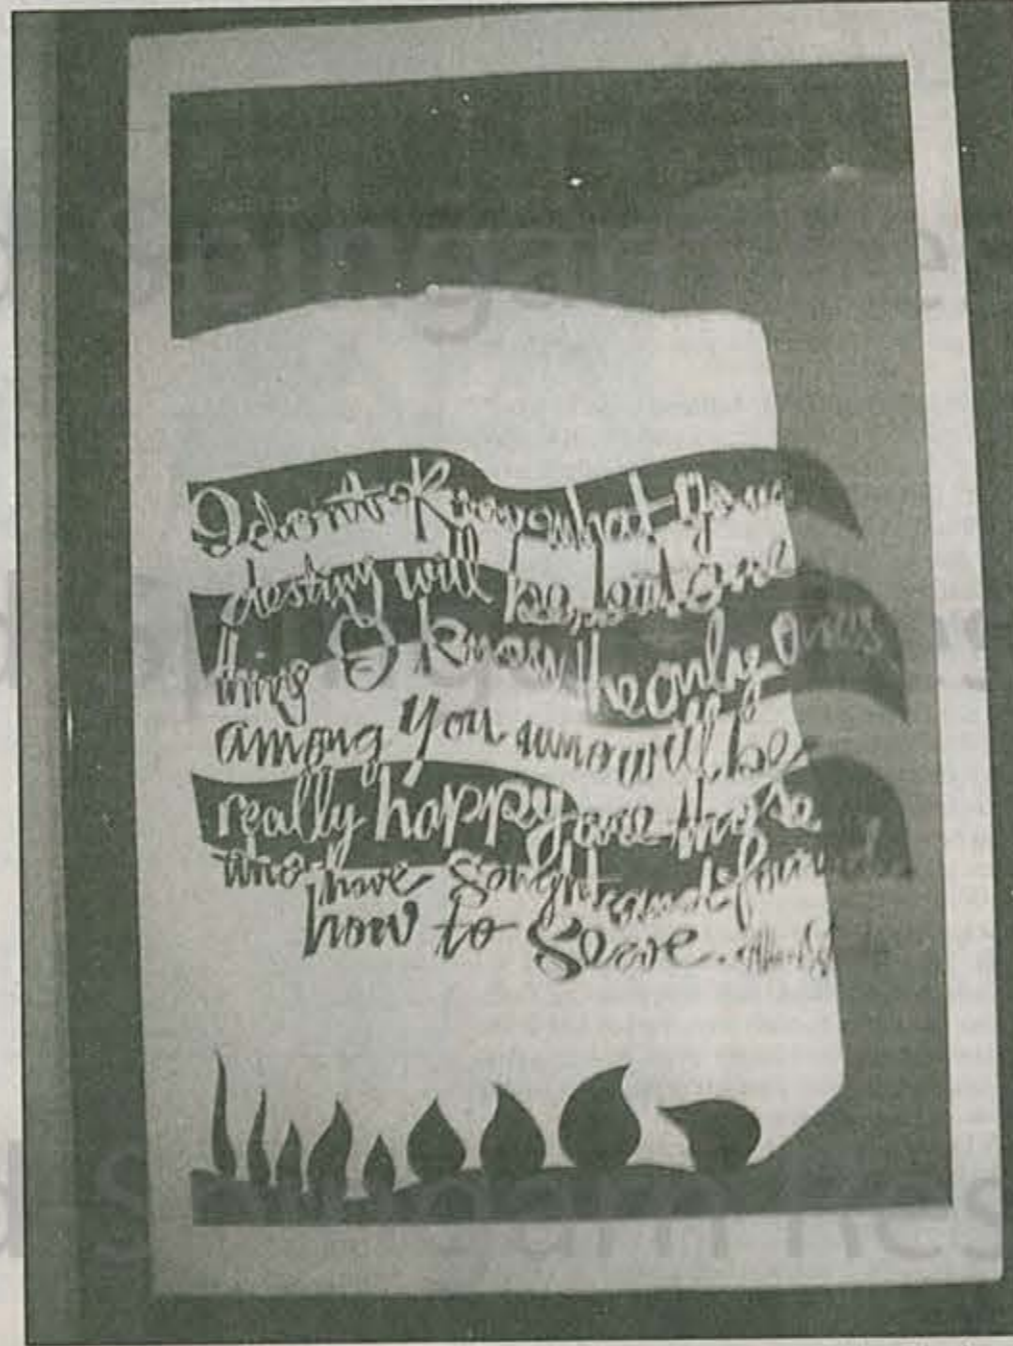 I don't know what your
destiny will be, but one
thing I know, the only ones
among you who will be
really happy are those
who have sought and found
how to serve.